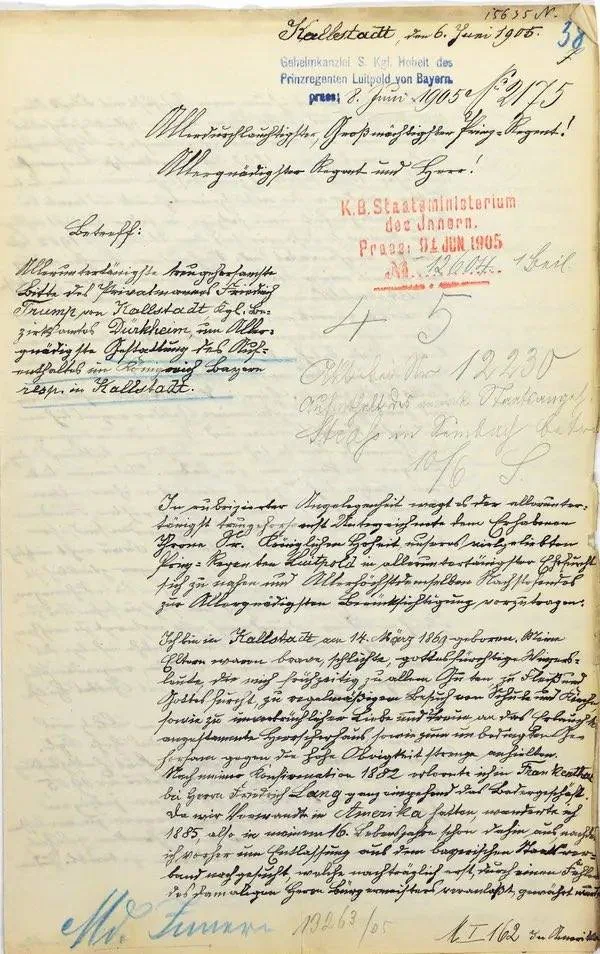 15635 N.
Kallstadt, den 6. Juni 1905.
38
Geheimkanzlei S. Kgl. Hoheit des
Prinzregenten Luitpold von Bayern.
praes: 8. Juni 1905 No 2175
Allerdurchlauchtigster, Großmächtigster Prinz-Regent!
Allergnädigster Regent und Herr!
K.B. Staatsministerium
des Innern.
Praes: 9 JUN. 1905
No. 12604. 1 Beil.
Betreff:
Alleruntertänigste treugehorsamste
Bitte des Privatmannes Friedrich
Trump von Kallstadt Kgl. Be-
zirksamtes Dürkheim, um Aller-
gnädigste Gestattung des Auf-
enthaltes im Königreich Bayern
resp. in Kallstadt.
4 5
No 12230
Aufenthalt des Staatsangeh.
in Simbach
10/6 S
In rubrizierter Angelegenheit wagt es der allerunter-
tänigst treugehorsamst Unterzeichnete dem Erhabenen
Throne Sr. Königlichen Hoheit unseres vielgeliebten
Prinz-Regenten Luitpold in alleruntertänigster Ehrfurcht
sich zu nahen und Allerhöchstdemselben Nachstehendes
zur Allergnädigsten Berücksichtigung vorzutragen:
Ich bin in Kallstadt am 14. März 1869 geboren. Meine
Eltern waren brave, schlichte, gottesfürchtige Winzers-
leute, die mich frühzeitig zu allem Guten zu Fleiß und
Gottesfurcht, zu regelmäßigem Besuch von Schule und Kirche
sowie zu unverbrüchlicher Liebe und Treue an das Erlauchte
angestammte Herrscherhaus sowie zum unbedingten Ge-
horsam gegen die hohe Obrigkeit strenge anhielten.
Nach meiner Konfirmation 1882 erlernte ich in Frankenthal
bei Herrn Friedrich Lang ganz eingehend das Badergeschäft.
Da wir Verwandte in Amerika hatten, wanderte ich
1885, also in meinem 16. Lebensjahre schon dahin aus nachdem
ich vorher um Entlassung aus dem bayerischen Staatsver-
band nachgesucht, welche nachträglich erst, durch einen Fehler
des damaligen Herrn Bürgermeisters veranlaßt, gewährt wurde
Md. Innern 13263/05
M. I 162 In Amerika